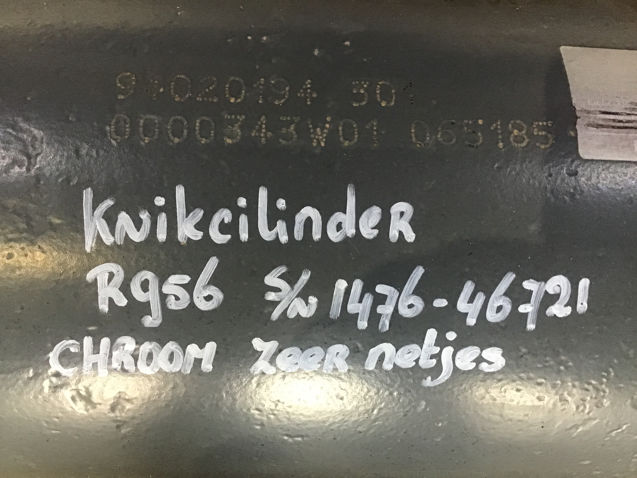 94020194 301
0000343W01 065185
Knikcilinder
R956 S/N 1476-46721
CHROOM Zeer netjes